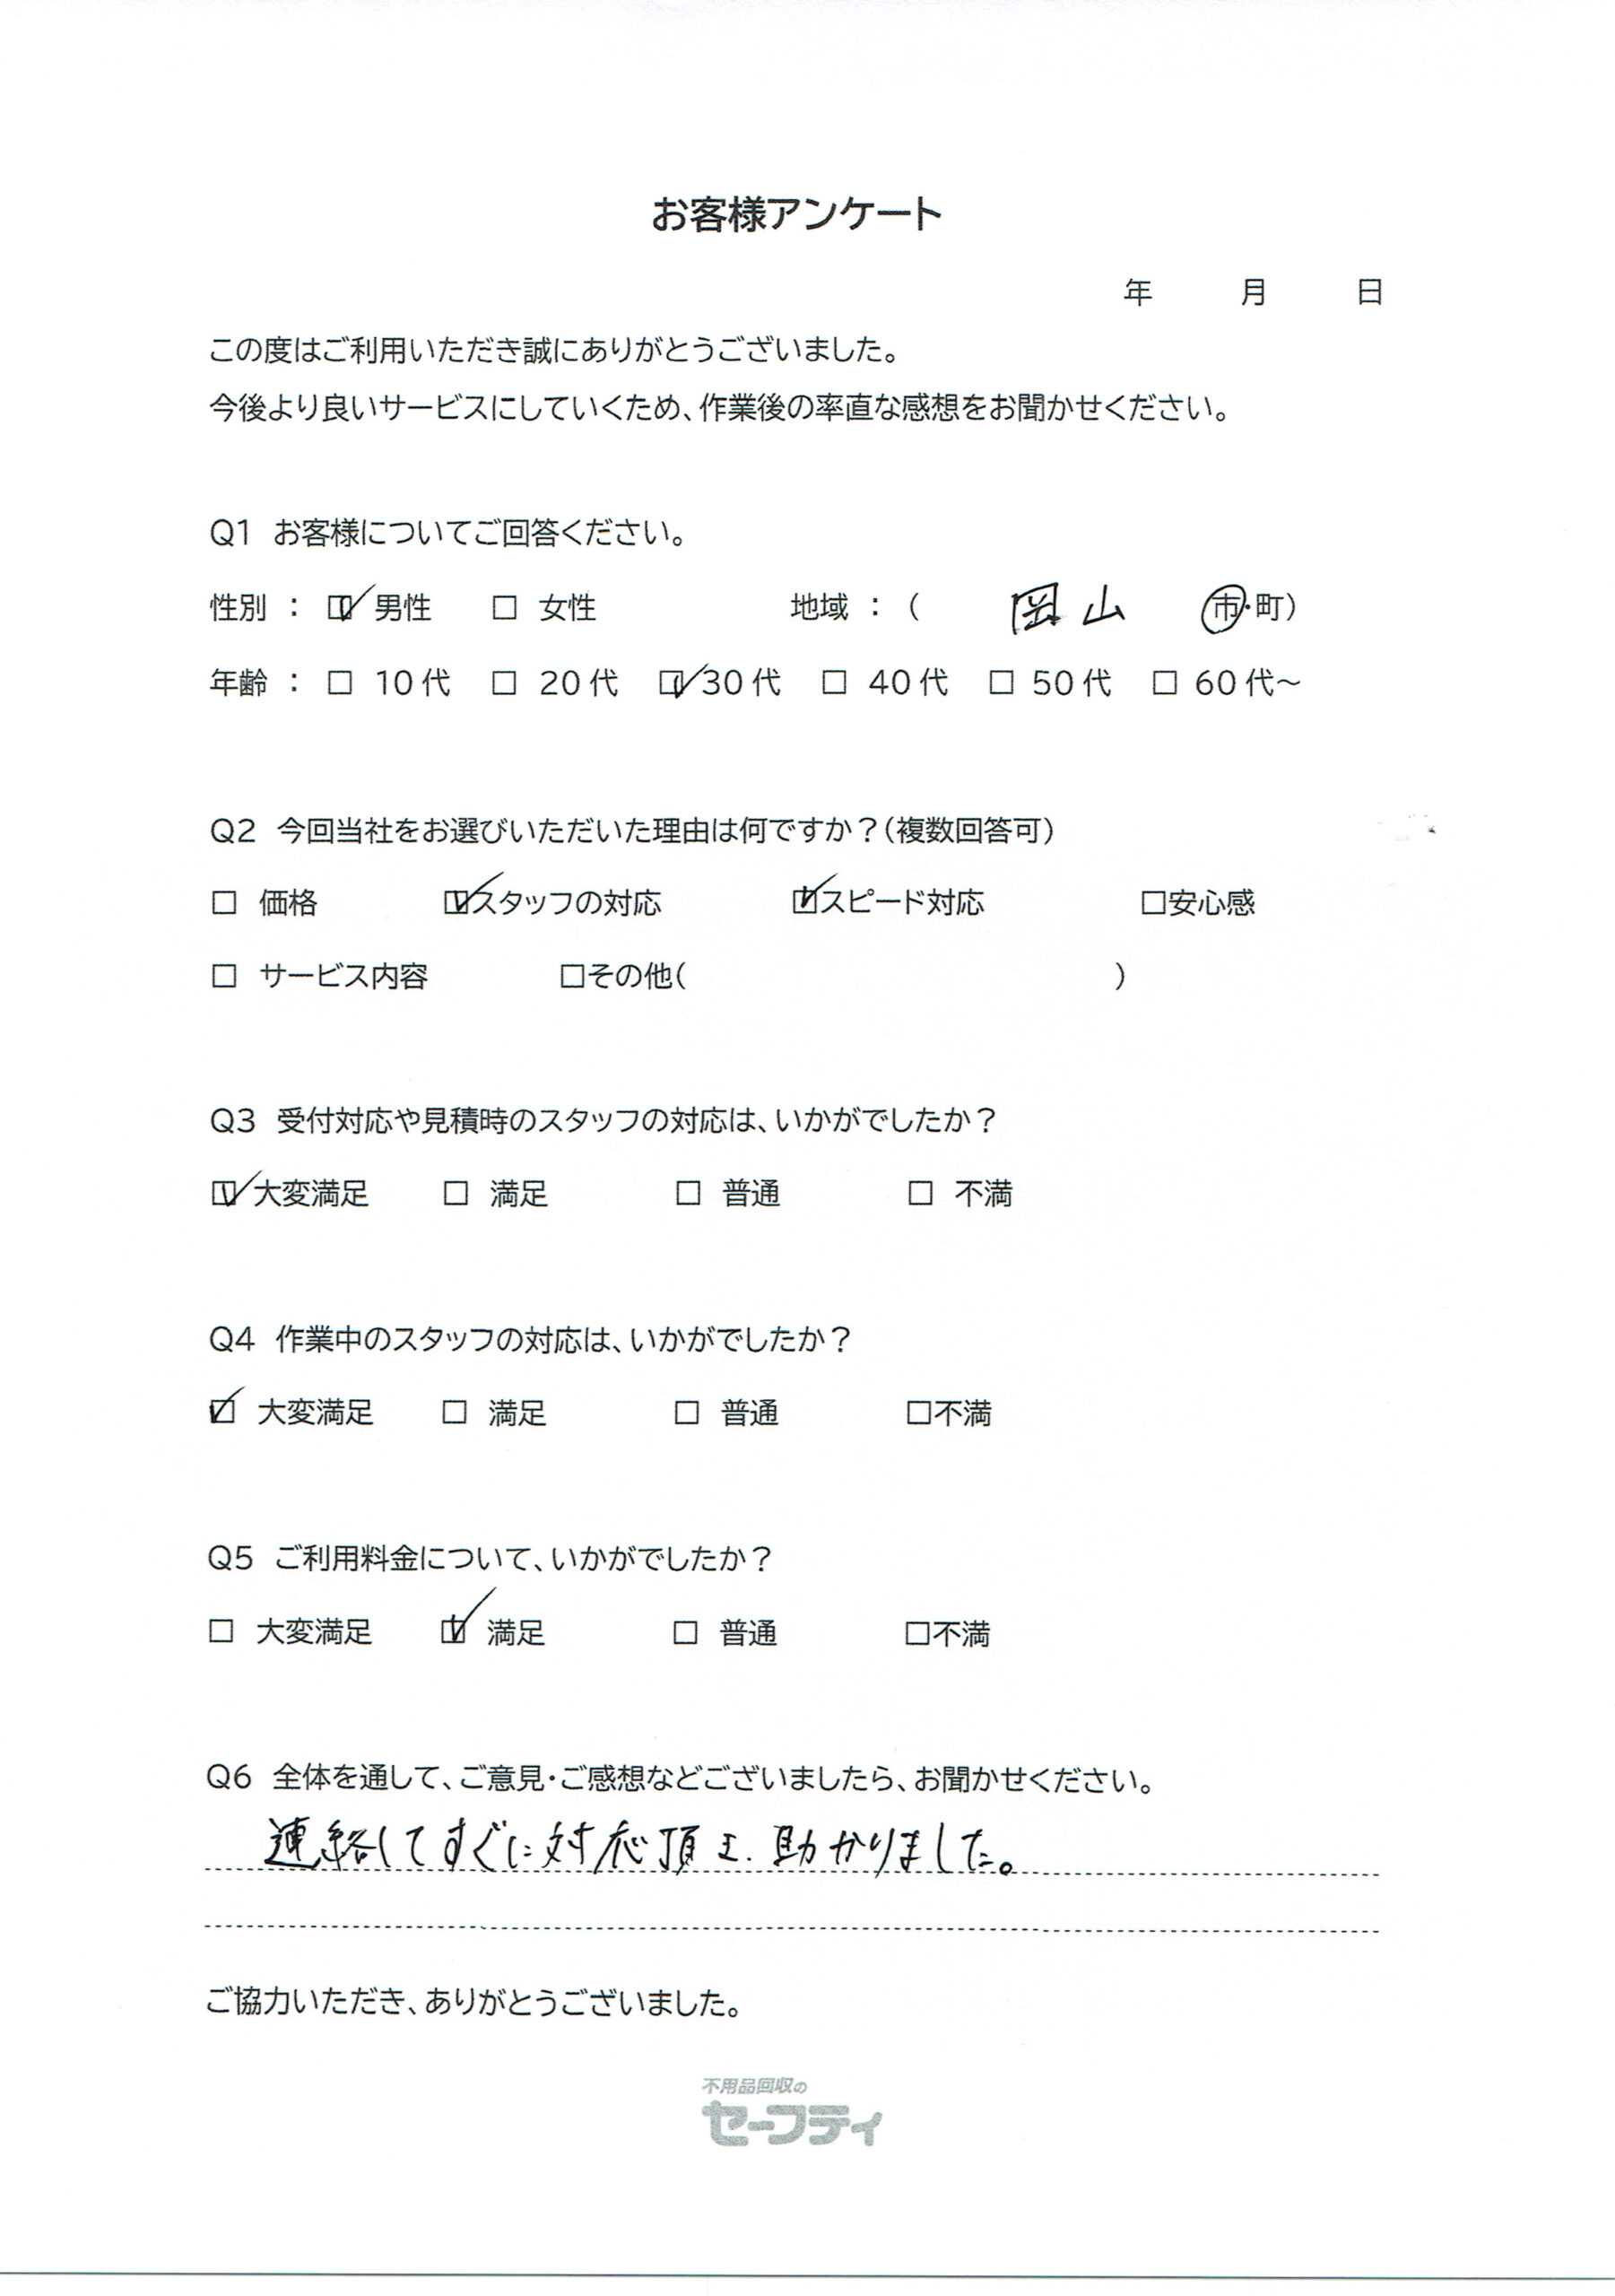 お客様アンケート
年 月 日
この度はご利用いただき誠にありがとうございました。
今後より良いサービスにしていくため、作業後の率直な感想をお聞かせください。
Q1 お客様についてご回答ください。
性別 : ☑ 男性 □ 女性 地域 : ( 岡山 市・町)
年齢 : □ 10代 □ 20代 ☑ 30代 □ 40代 □ 50代 □ 60代~
Q2 今回当社をお選びいただいた理由は何ですか?(複数回答可)
□ 価格 ☑スタッフの対応 ☑スピード対応 □安心感
□ サービス内容 □その他( )
Q3 受付対応や見積時のスタッフの対応は、いかがでしたか?
☑ 大変満足 □ 満足 □ 普通 □ 不満
Q4 作業中のスタッフの対応は、いかがでしたか?
☑ 大変満足 □ 満足 □ 普通 □不満
Q5 ご利用料金について、いかがでしたか?
□ 大変満足 ☑ 満足 □ 普通 □不満
Q6 全体を通して、ご意見・ご感想などございましたら、お聞かせください。
連絡してすぐに対応頂き、助かりました。
ご協力いただき、ありがとうございました。
不用品回収の
セーフティ